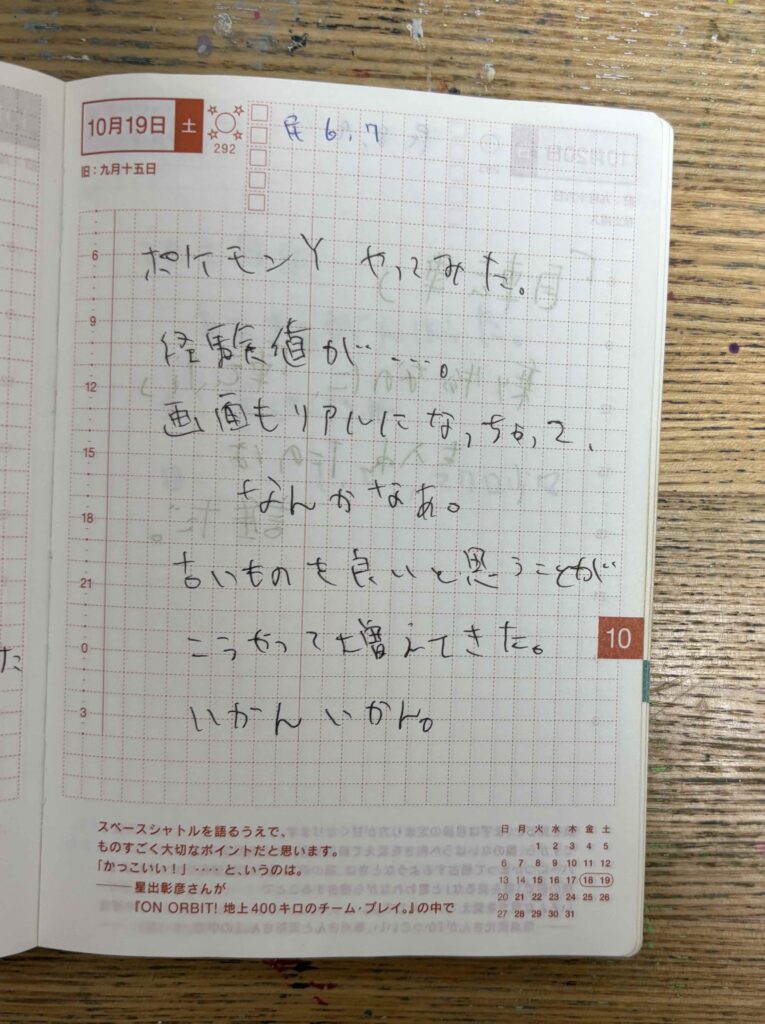 10月19日 土
292
旧：九月十五日
民 6,7
6
9
12
15
18
21
0
3
ポケモンY やってみた。
経験値が…。
画面もリアルになっちゃって、
なんかなあ。
古いものを良いと思うことが
こうやって増えてきた。
いかんいかん。
10
た
スペースシャトルを語るうえで、
ものすごく大切なポイントだと思います。
「かっこいい！」‥‥と、いうのは。
――星出彰彦さんが
『ON ORBIT! 地上400キロのチーム・プレイ。』の中で
日 月 火 水 木 金 土
1 2 3 4 5
6 7 8 9 10 11 12
13 14 15 16 17 18 19
20 21 22 23 24 25 26
27 28 29 30 31